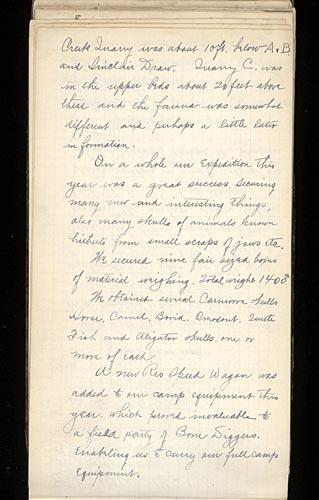 Creek Quarry was about 10 ft. below A & B
and Sinclair Draw. Quarry C. was
in the upper beds about 20 feet above
these and the fauna was somewhat
different and perhaps a little later
in formation.
On a whole our Expedition this
year was a great success, securing
many new and interesting things,
also many skulls of animals known
hitherto from small scraps of jaws etc.
We secured nine fair sized boxes
of material weighing. Total weight 1400
We obtained several Carnivora skulls
Horse, Camel, Bovid. Turtle
Fish and Aligator skulls one or
more of each.
A new Reo Speed Wagon was
added to our camp equipment this
year. which proved invaluable to
a field party of Bone Diggers.
Enabling us to carry our full camp
Equipment.